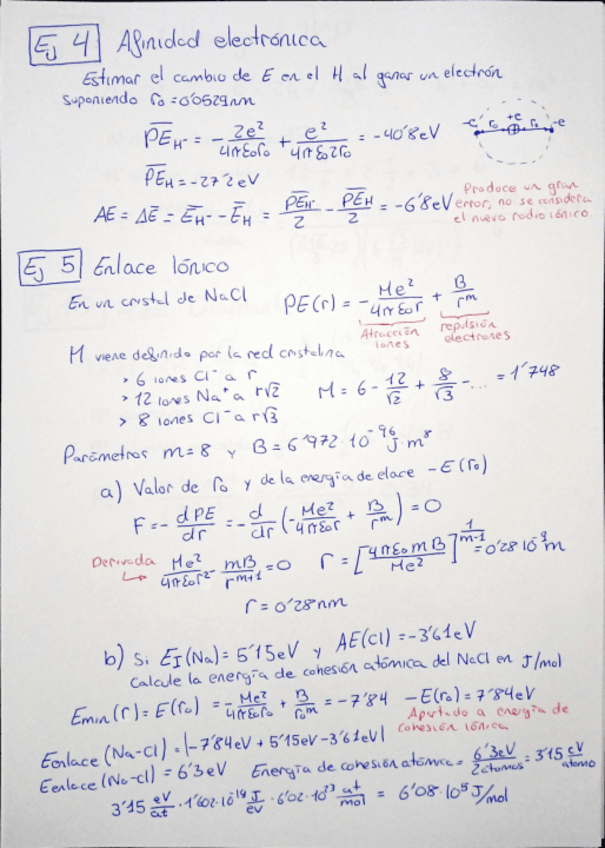 Ej 4 Afinidad electrónica
Estimar el cambio de E en el H al ganar un electrón
suponiendo r₀ = 0'0529nm
P̅E̅_H⁻ = -2e²/4πε₀r₀ + e²/4πε₀2r₀ = -40'8eV
-e r₀ +e r₀ -e
P̅E̅_H = -27'2eV
AE = ΔE̅ = E̅_H⁻ - E̅_H = P̅E̅_H⁻/2 - P̅E̅_H/2 = -6'8eV
Produce un gran
error, no se considera
el nuevo radio iónico.
Ej 5 Enlace Iónico
En un cristal de NaCl PE(r) = -Me²/4πε₀r + B/r^m
Atracción iones
repulsión electrones
M viene definido por la red cristalina
> 6 iones Cl⁻ a r
> 12 iones Na⁺ a r√2 M = 6 - 12/√2 + 8/√3 - ... = 1'748
> 8 iones Cl⁻ a r√3
Parámetros m=8 y B = 6'972·10⁻⁹⁶ J·m⁸
a) Valor de r₀ y de la energía de elace -E(r₀)
F = -dPE/dr = -d/dr(-Me²/4πε₀r + B/r^m) = 0
Derivada Me²/4πε₀r² - mB/r^(m+1) = 0 r = [4πε₀mB/Me²]^(1/(m-1)) = 0'28·10⁻⁹m
r = 0'28nm
b) Si E_I(Na) = 5'15eV y AE(Cl) = -3'61eV
Calcule la energía de cohesión atómica del NaCl en J/mol
Emin(r) = E(r₀) = -Me²/4πε₀r₀ + B/r₀^m = -7'84 -E(r₀) = 7'84eV
Apartado a energía de
cohesión iónica
Eenlace (Na-Cl) = |-7'84eV + 5'15eV - 3'61eV|
Eenlace (Na-Cl) = 6'3eV Energía de cohesión atómica = 6'3eV/2átomos = 3'15 eV/átomo
3'15 eV/at · 1'602·10⁻¹⁹ J/eV · 6'02·10²³ at/mol = 6'08·10⁵ J/mol